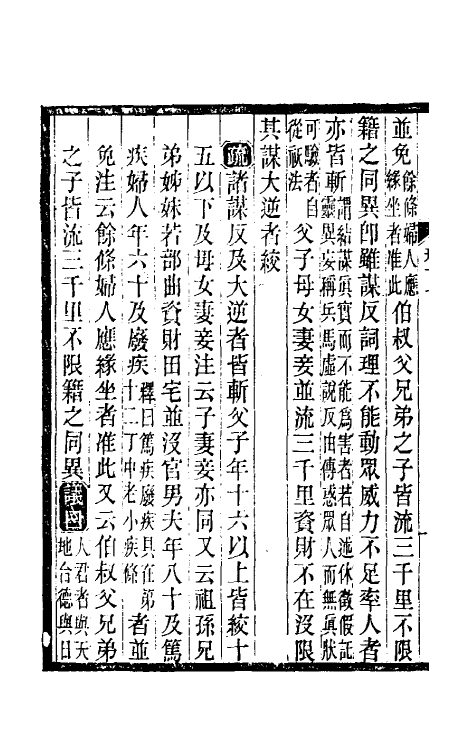 並免餘條婦人應緣坐者准此伯叔父兄弟之子皆流三千里不限
籍之同異卽雖謀反詞理不能動眾威力不足率人者
亦皆斬謂結謀眞實而不能為害者若自述休徵假託靈異妄稱兵馬虛說反由傳惑眾人而無眞狀
可驗者自從祅法父子母女妻妾並流三千里資財不在沒限
其謀大逆者絞
疏諸謀反及大逆者皆斬父子年十六以上皆絞十
五以下及母女妻妾注云子妻妾亦同又云祖孫兄
弟姊妹若部曲資財田宅並沒官男夫年八十及篤
疾婦人年六十及廢疾釋曰篤疾廢疾具在弟十二丁中老小疾條者並
免注云餘條婦人應緣坐者准此又云伯叔父兄弟
之子皆流三千里不限籍之同異議曰人君者與天地合德與日